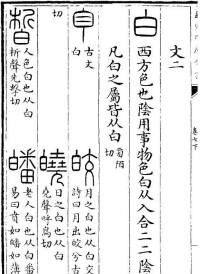 文二
白 西方色也陰用事物色白从入合二二陰
凡白之屬皆从白 旁陌切
古文白
皎 月之白也从白交
詩曰月出皎兮古
切
曉 日之白也从白
堯聲呼鳥切
皙 人色白也从白
析聲先擊切
皤 老人白也从白番
易曰賁如皤如薄